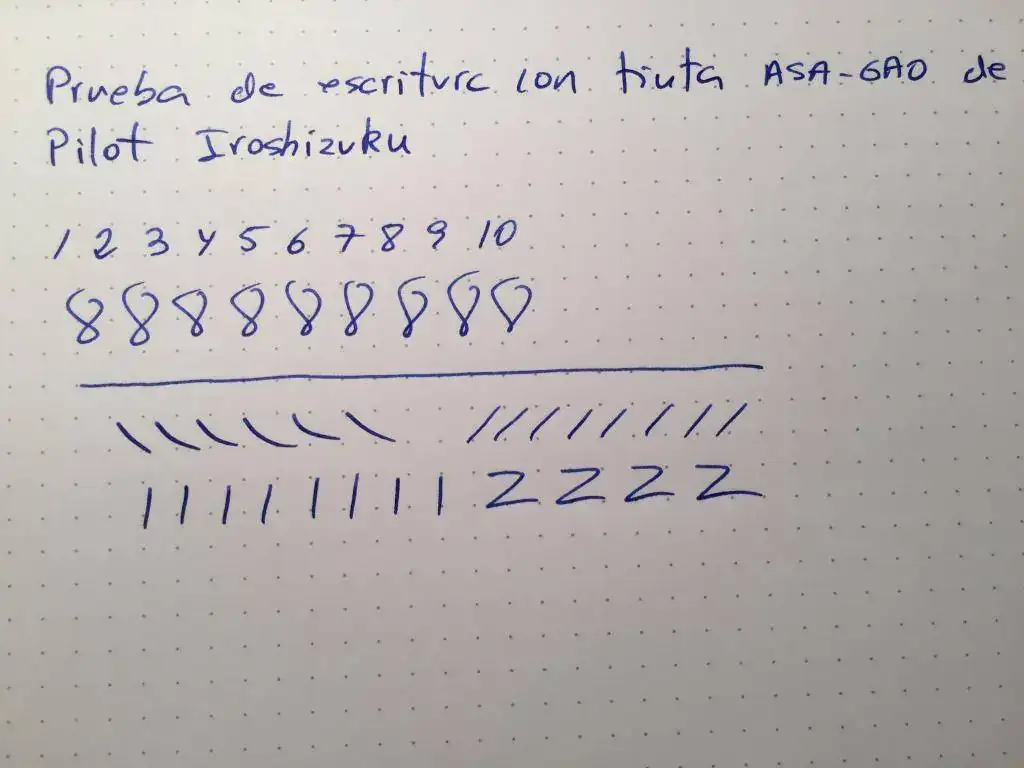 Prueba de escritura con tinta ASA-GAO de
Pilot Iroshizuku
1 2 3 4 5 6 7 8 9 10
8 8 8 8 8 8 8 8 8
\ \ \ \ \ \ / / / / / / / /
| | | | | | | | Z Z Z Z